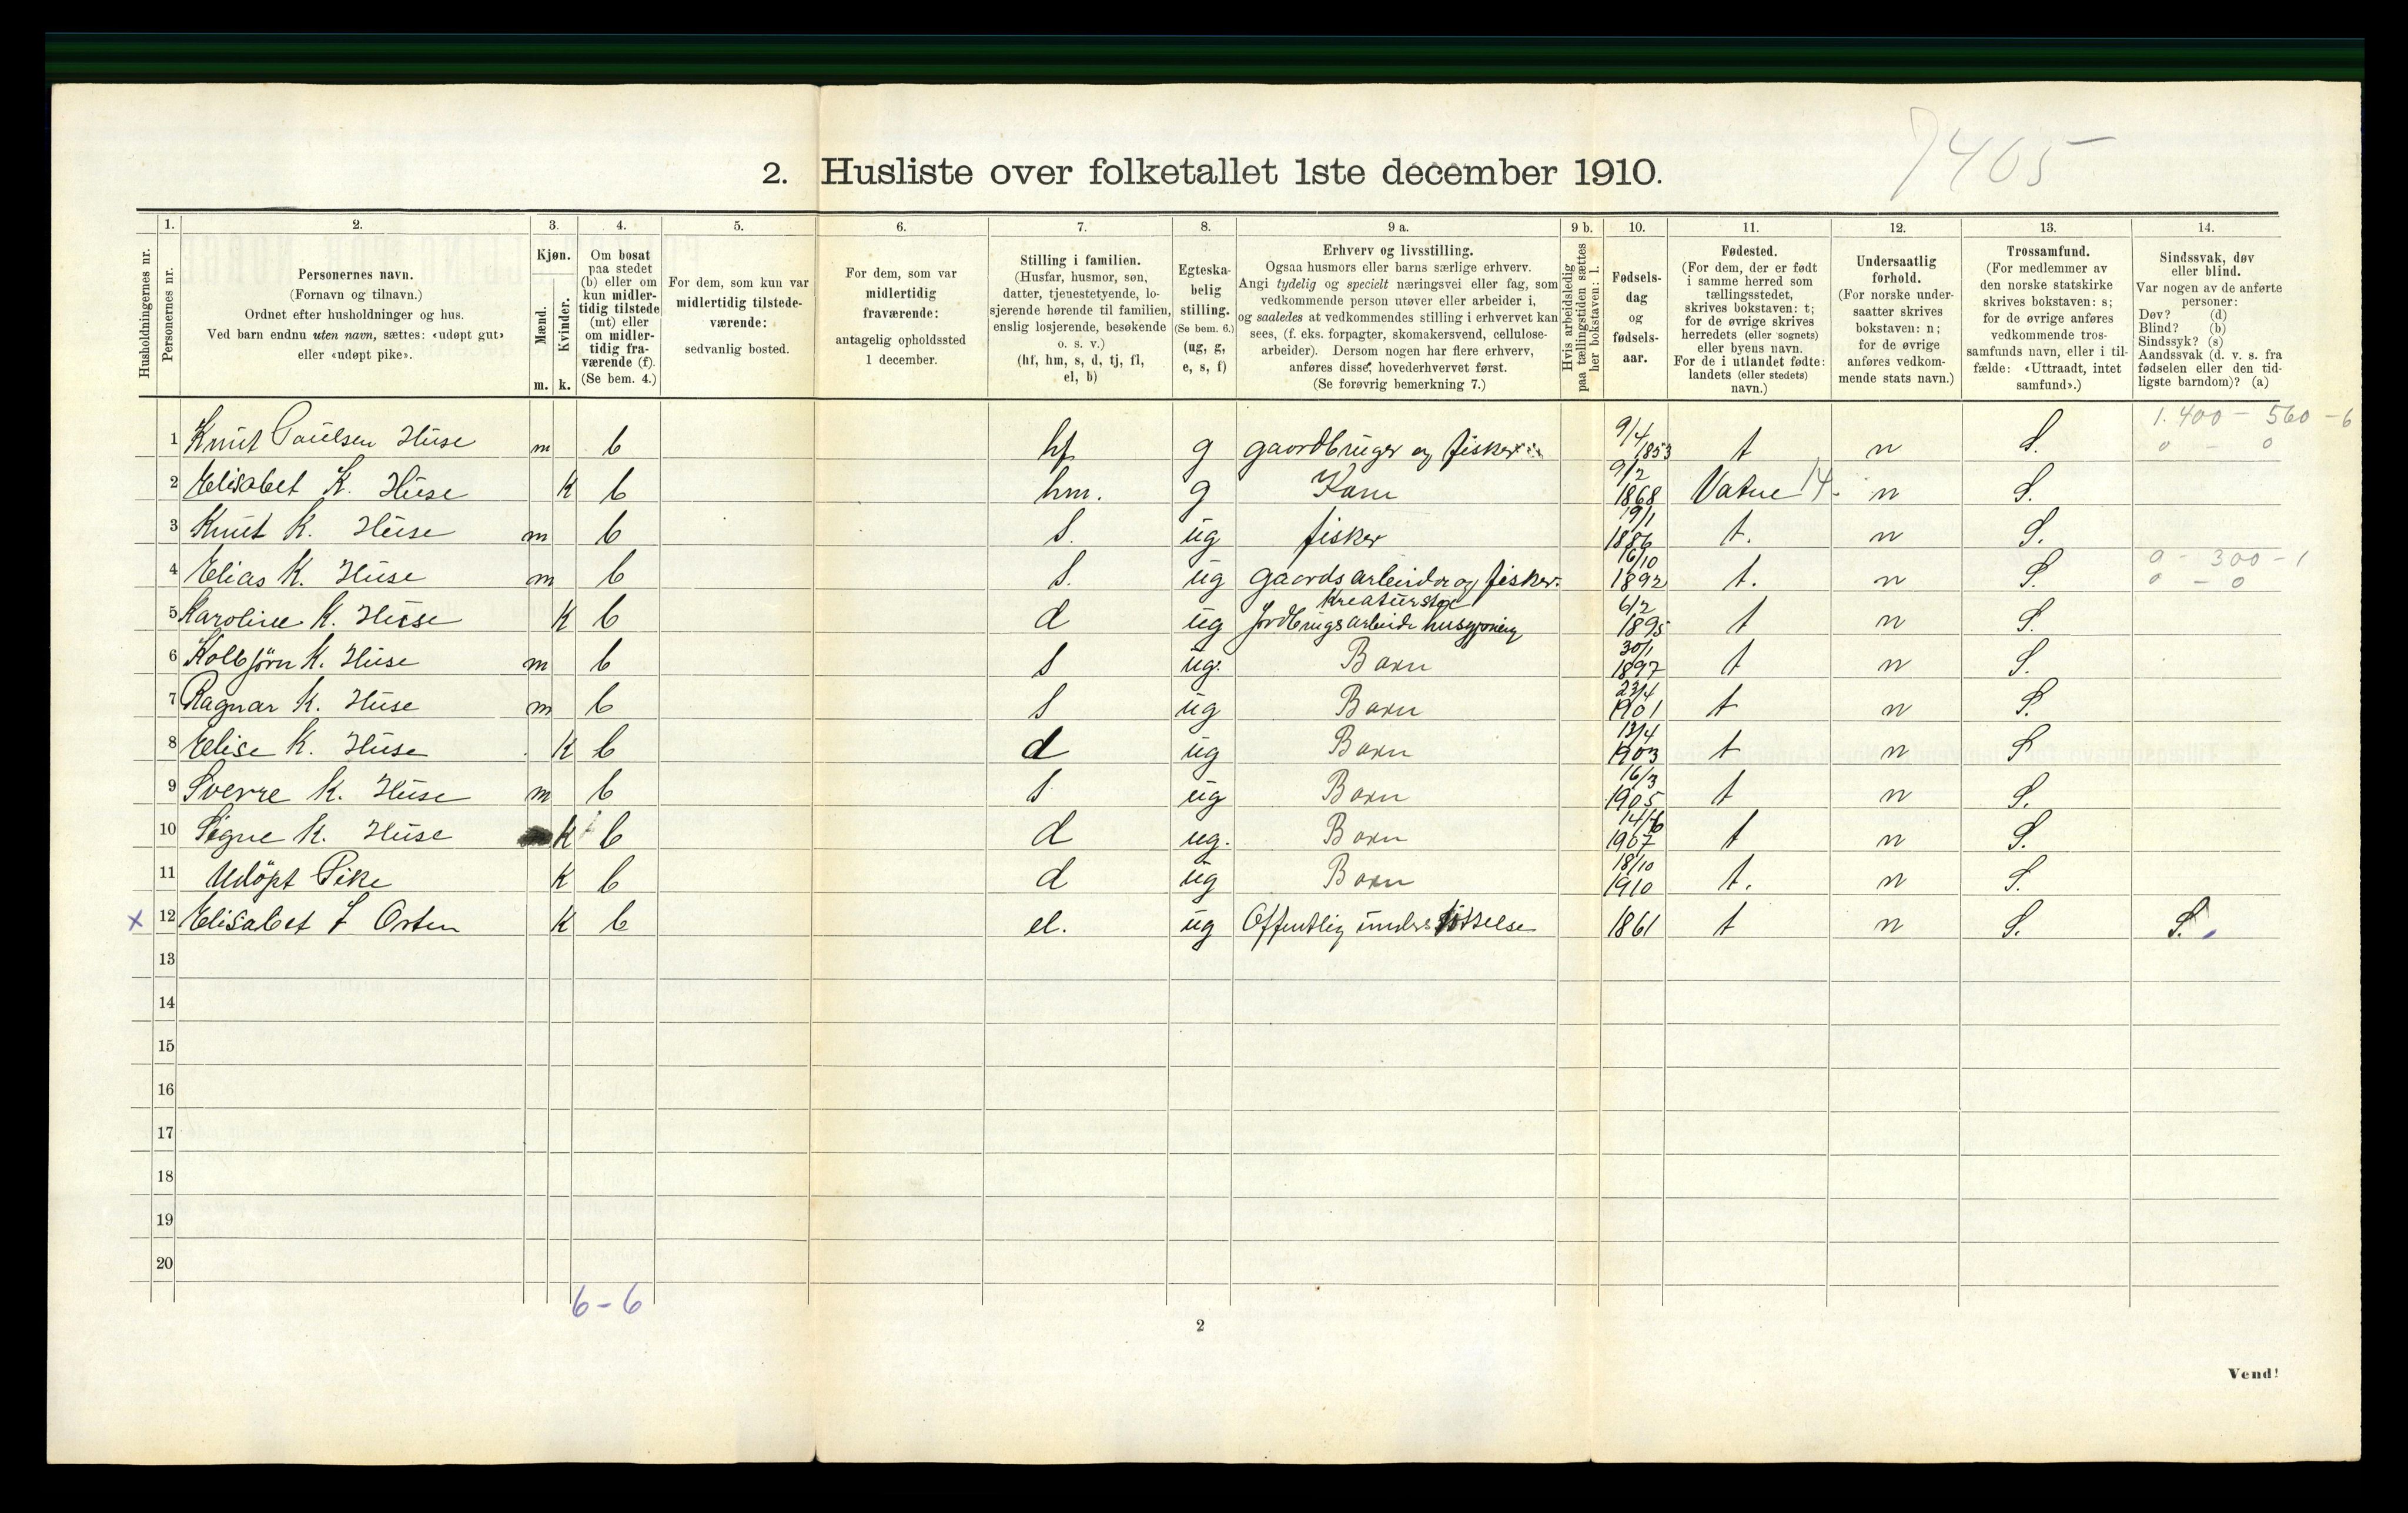 7405
2. Husliste over folketallet 1ste december 1910.
Husholdningernes nr.
1. Personernes nr.
2. Personernes navn.
(Fornavn og tilnavn.)
Ordnet efter husholdninger og hus.
Ved barn endnu uten navn, sættes: «udøpt gut»
eller «udøpt pike».
3. Kjøn.
Mænd. m.
Kvinder. k.
4. Om bosat
paa stedet
(b) eller om
kun midler-
tidig tilstede
(mt) eller
om midler-
tidig fra-
værende (f).
(Se bem. 4.)
5. For dem, som kun var
midlertidig tilstede-
værende:
sedvanlig bosted.
6. For dem, som var
midlertidig
fraværende:
antagelig opholdssted
1 december.
7. Stilling i familien.
(Husfar, husmor, søn,
datter, tjenestetyende, lo-
sjerende hørende til familien,
enslig losjerende, besøkende
o. s. v.)
(hf, hm, s, d, tj, fl,
el, b)
8. Egteska-
belig
stilling.
(Se bem. 6.)
(ug, g,
e, s, f)
9 a. Erhverv og livsstilling.
Ogsaa husmors eller barns særlige erhverv.
Angi tydelig og specielt næringsvei eller fag, som
vedkommende person utøver eller arbeider i,
og saaledes at vedkommendes stilling i erhvervet kan
sees, (f. eks. forpagter, skomakersvend, cellulose-
arbeider). Dersom nogen har flere erhverv,
anføres disse, hovederhvervet først.
(Se forøvrig bemerkning 7.)
9 b. Hvis arbeidsledig
paa tællingstiden sættes
her bokstaven: l.
10. Fødsels-
dag
og
fødsels-
aar.
11. Fødested.
(For dem, der er født
i samme herred som
tællingsstedet,
skrives bokstaven: t;
for de øvrige skrives
herredets (eller sognets)
eller byens navn.
For de i utlandet fødte:
landets (eller stedets)
navn.)
12. Undersaatlig
forhold.
(For norske under-
saatter skrives
bokstaven: n;
for de øvrige
anføres vedkom-
mende stats navn.)
13. Trossamfund.
(For medlemmer av
den norske statskirke
skrives bokstaven: s;
for de øvrige anføres
vedkommende tros-
samfunds navn, eller i til-
fælde: «Uttraadt, intet
samfund».)
14. Sindssvak, døv
eller blind.
Var nogen av de anførte
personer:
Døv? (d)
Blind? (b)
Sindssyk? (s)
Aandssvak (d. v. s. fra
fødselen eller den tid-
ligste barndom)? (a)
1 Knut Paulsen Huse m b hf g gaordbruger og fisker 9/4 1853 t n S. 1.400 - 560 - 6
0 - 0
2 Elisabet K. Huse k b hm. g Kone 9/2 1868 Vatne 14. n S.
3 Knut K. Huse m b S. ug fisker 19/1 1886 t. n S.
4 Elias K. Huse m b S. ug gaordsarbeider og fisker. 16/10 1892 t. n S. 0 - 300 - 1
0 - 0
5 Karoline K. Huse k b d ug Jordbrugsarbeide kreaturstel husgjerning 6/2 1895 t n S.
6 Kolbjörn K. Huse m b S ug. Barn 30/1 1897 t n S.
7 Ragnar K. Huse m b S ug Barn 23/4 1901 t n S.
8 Elise K. Huse k b d ug Barn 13/4 1903 t n S
9 Sverre K. Huse m b S ug Barn 16/3 1905 t n S.
10 Signe K. Huse k b d ug. Barn 14/6 1907 t n S.
11 Udöpt Pike k b d ug Barn 18/10 1910 t. n S.
x 12 Elisabet S Orten k b el. ug Offentlig understöttelse 1861 t n S. S.
13
14
15
16
17
18
19
20
6 - 6
2
Vend!